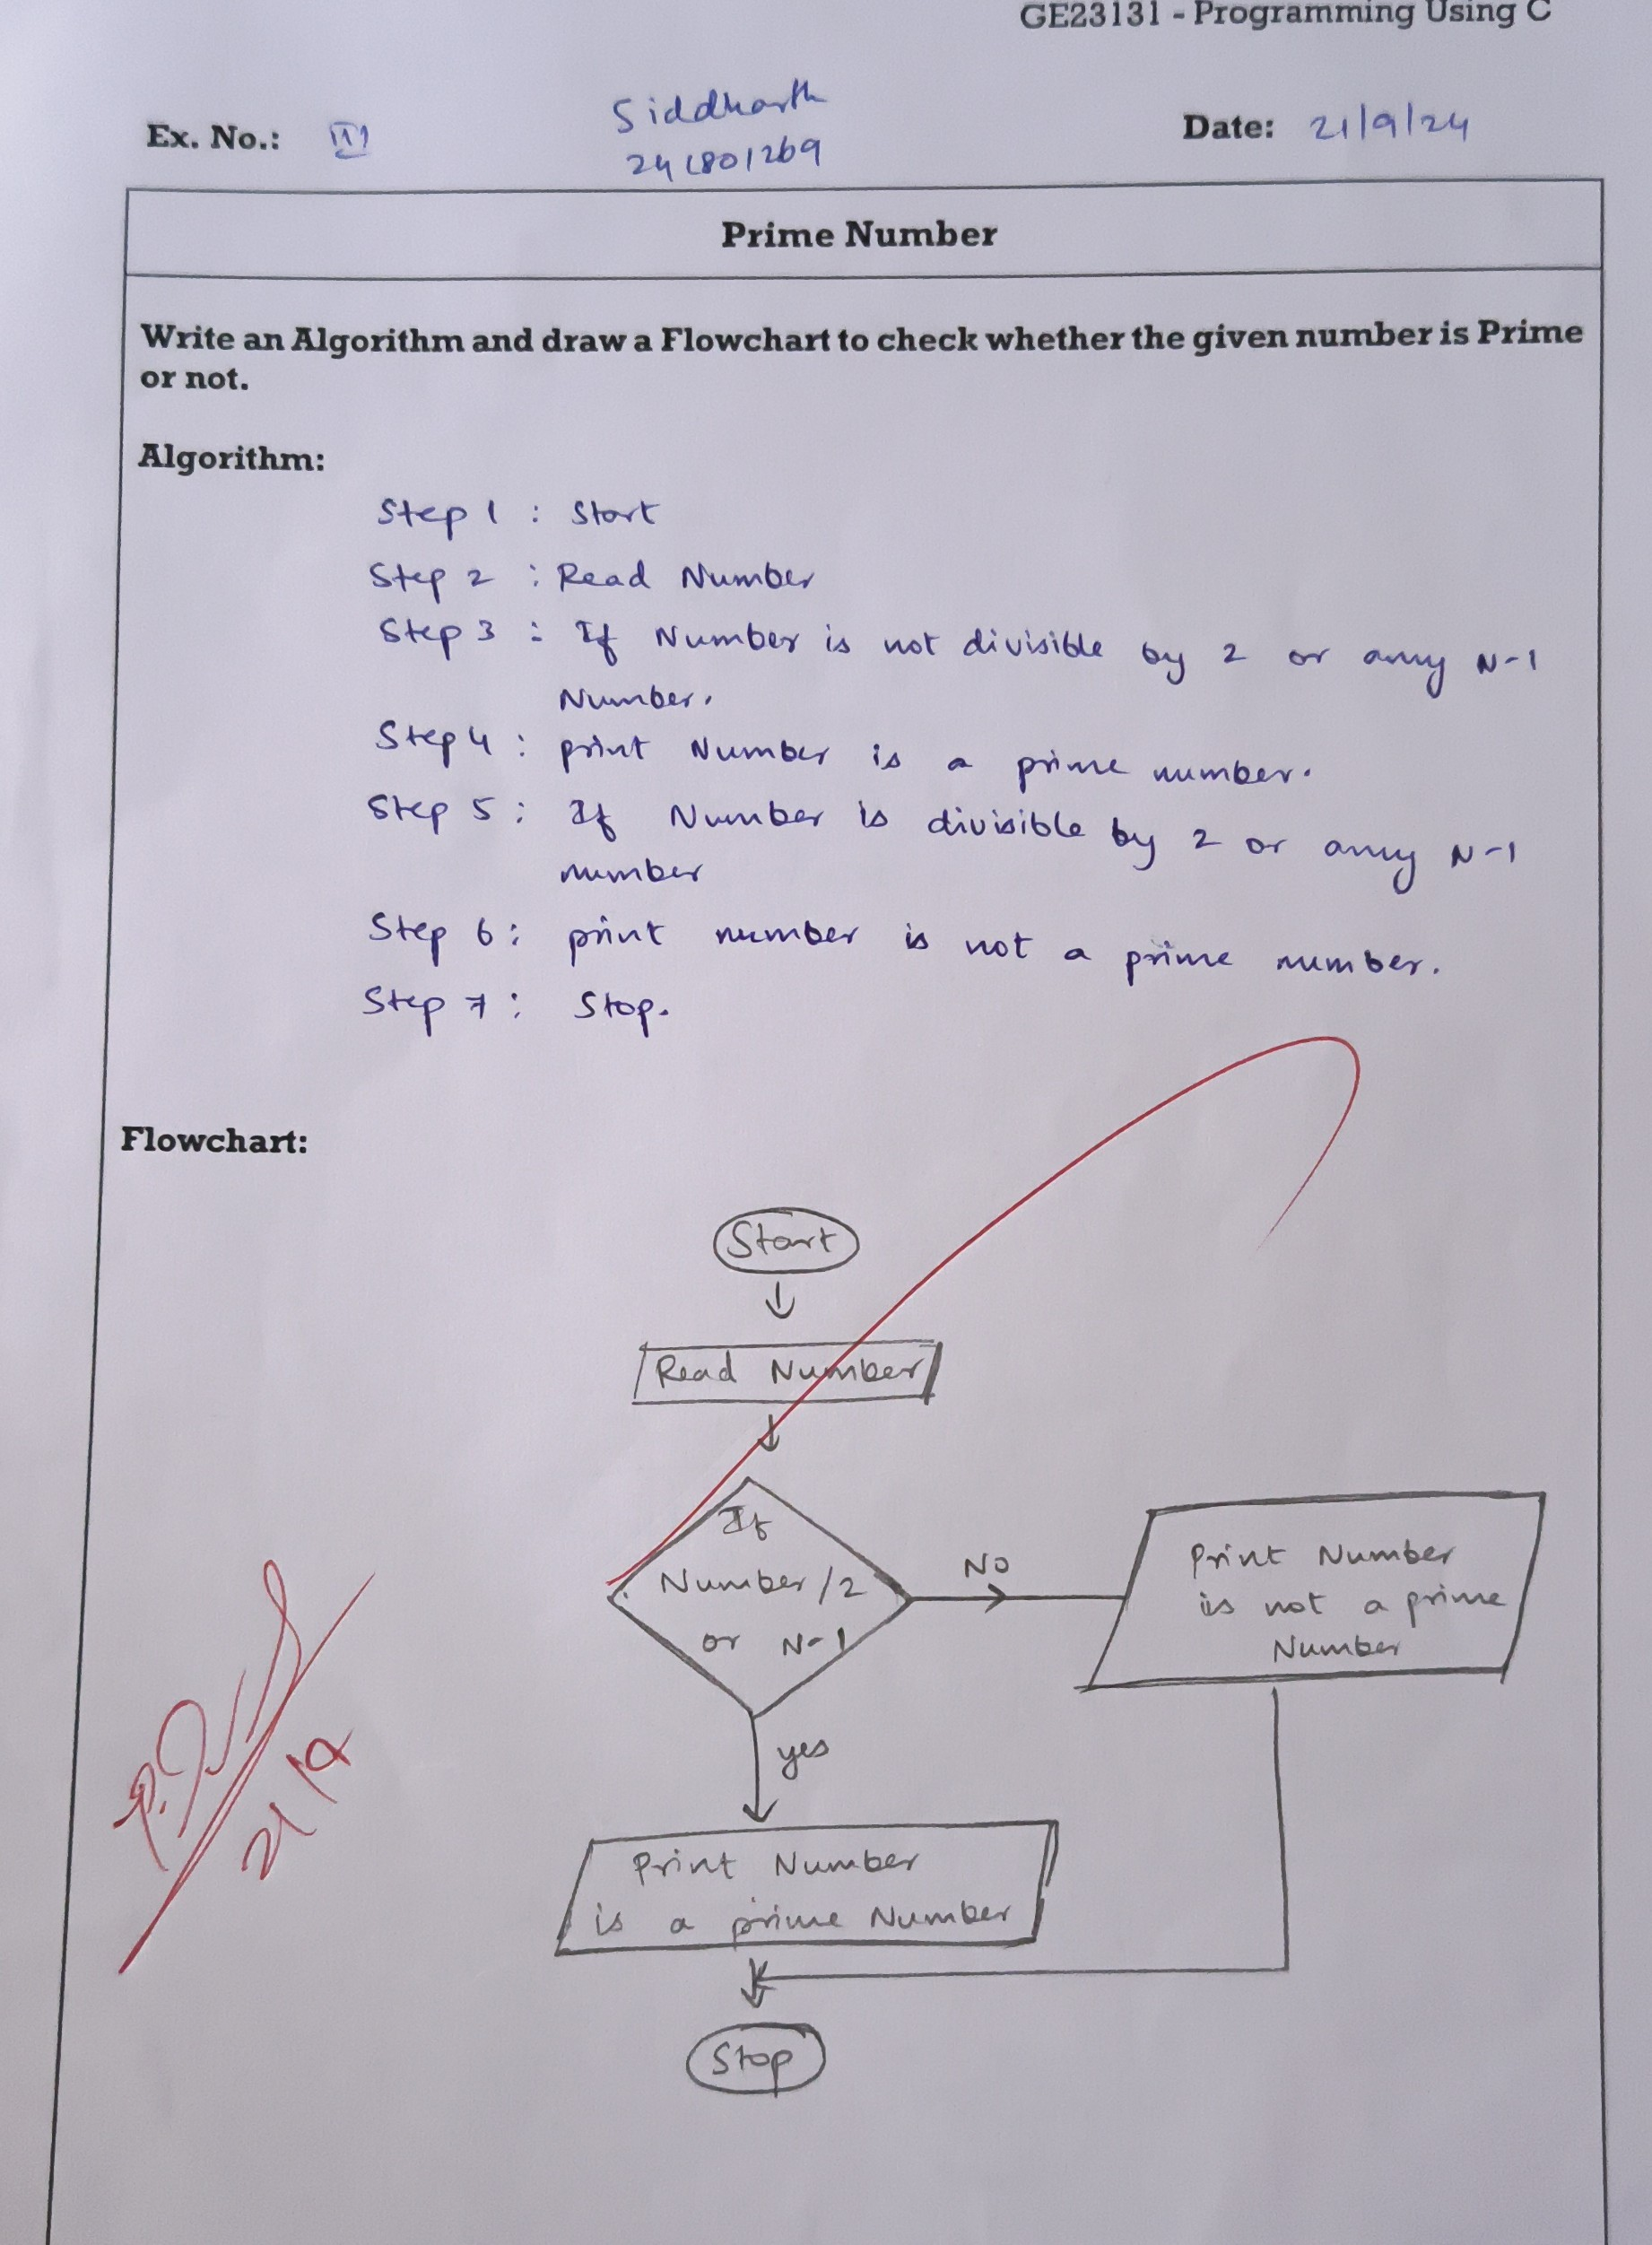 GE23131 - Programming Using C
Ex. No.: III
Siddharth
241801269
Date: 21/9/24
Prime Number
Write an Algorithm and draw a Flowchart to check whether the given number is Prime
or not.
Algorithm:
Step 1 : Start
Step 2 : Read Number
Step 3 : If Number is not divisible by 2 or any N-1
Number.
Step 4 : print Number is a prime number.
Step 5 : If Number is divisible by 2 or any N-1
number
Step 6 : print number is not a prime number.
Step 7 : Stop.
Flowchart:
Start
Read Number
If
Number /2
or N-1
NO
Print Number
is not a prime
Number
yes
Print Number
is a prime Number
Stop
21/9